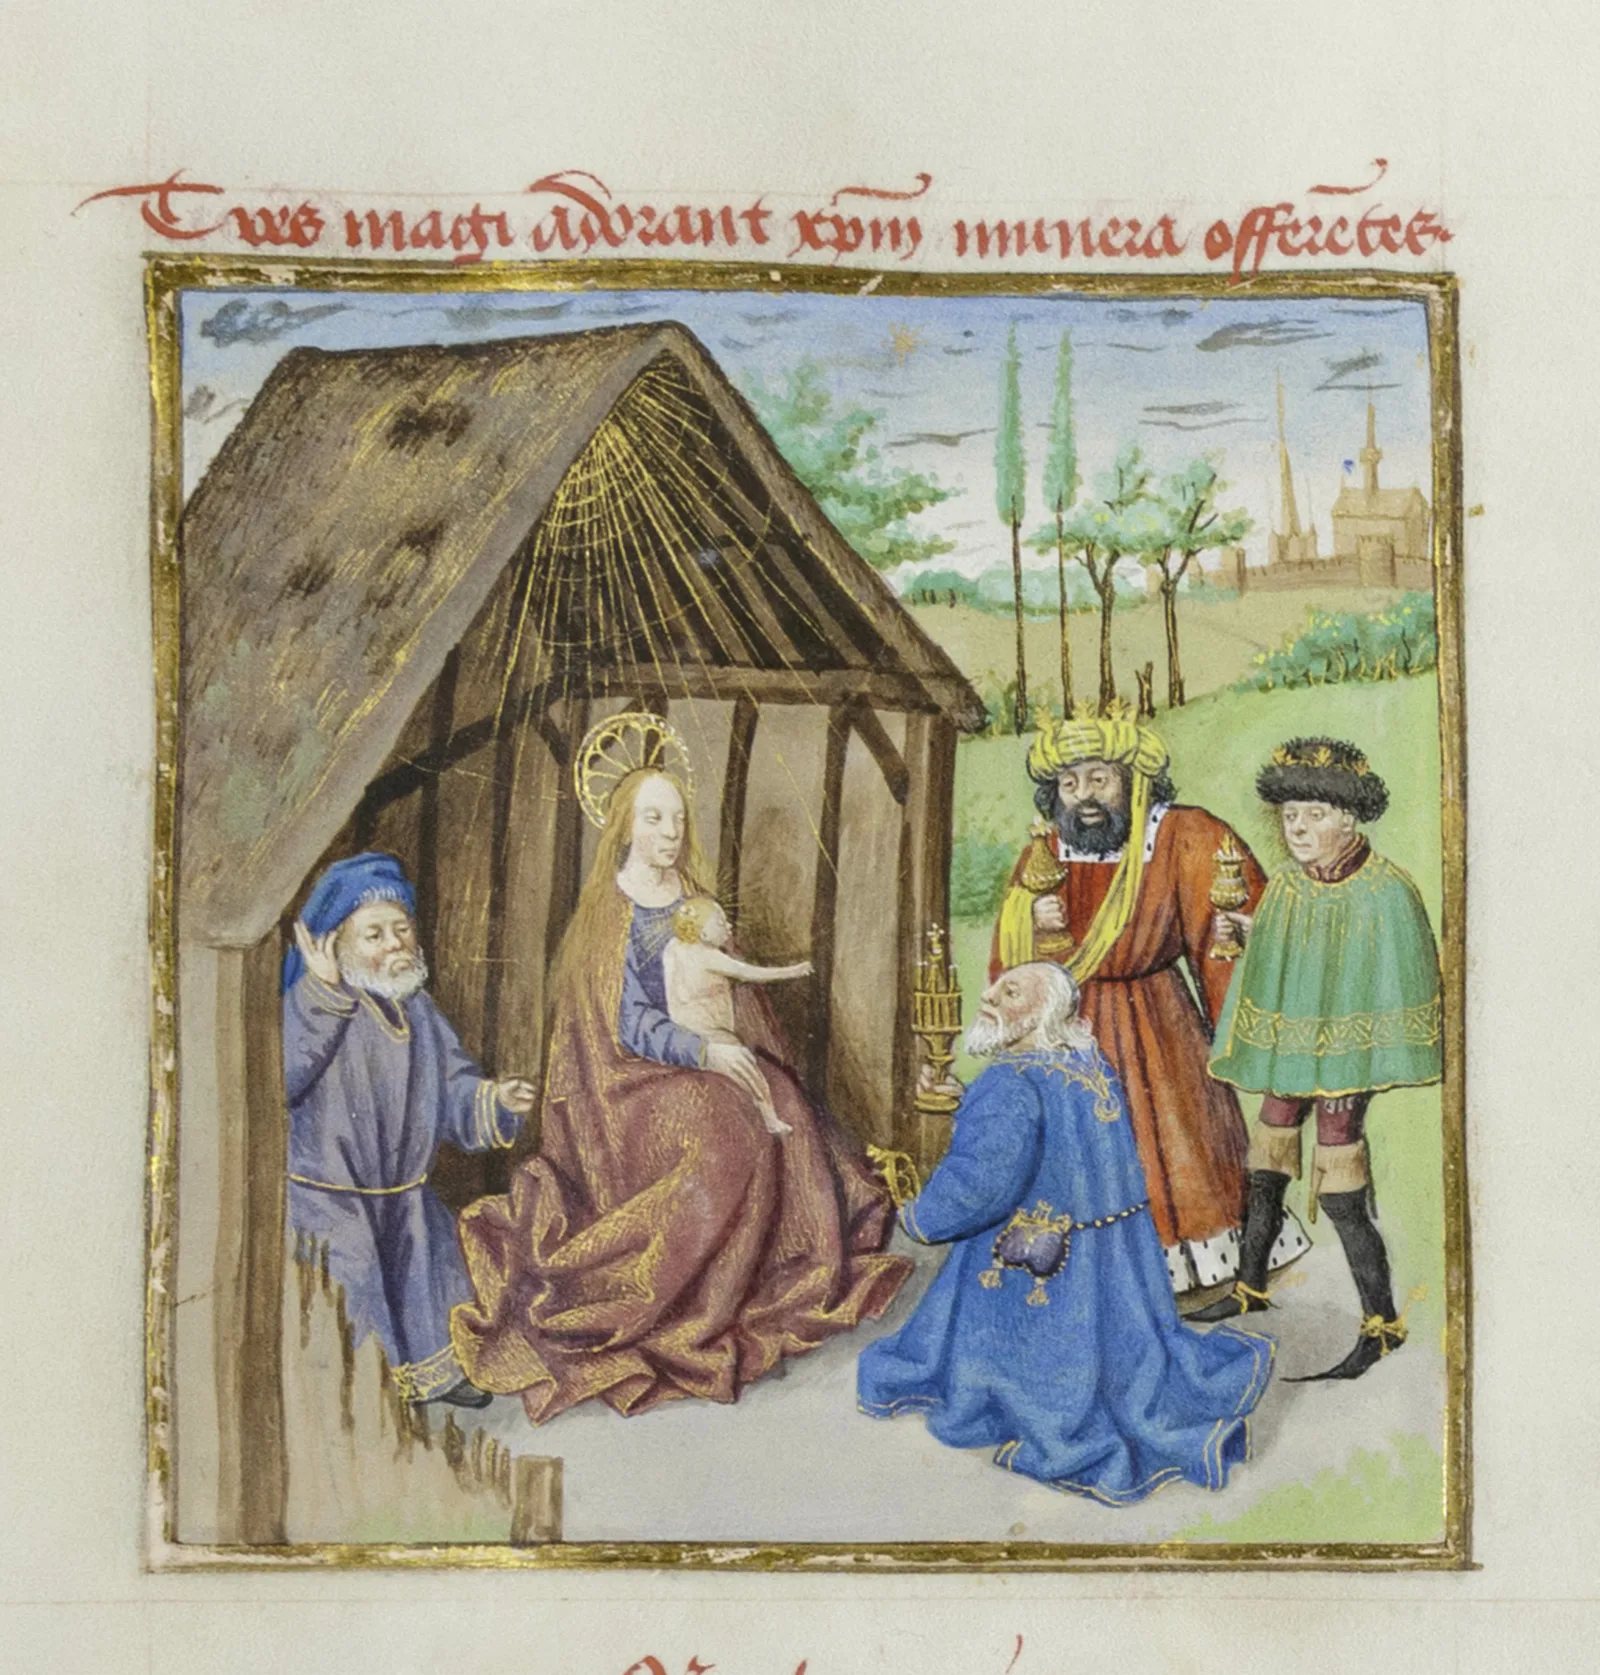 Tres magi adorant xp̄m munera offerēt​es.